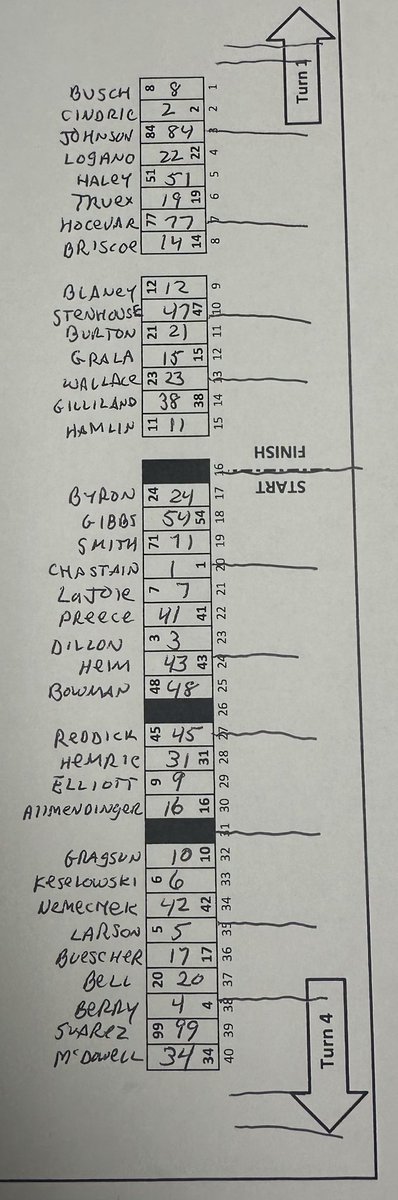 Turn 1
BUSCH 8 8 1
CINDRIC 2 2 2
JOHNSON 84 84 3
LOGANO 22 22 4
HALEY 51 51 5
TRUEX 19 19 6
HOCEVAR 77 77 7
BRISCOE 14 14 8
BLANEY 12 12 9
STENHOUSE 47 47 10
BURTON 21 21 11
GRALA 15 15 12
WALLACE 23 23 13
GILLILAND 38 38 14
HAMLIN 11 11 15
FINISH
16
START
BYRON 24 24 17
GIBBS 54 54 18
SMITH 71 71 19
CHASTAIN 1 1 20
LAJOIE 7 7 21
PREECE 41 41 22
DILLON 3 3 23
HEIM 43 43 24
BOWMAN 48 48 25
26
REDDICK 45 45 27
HEMRIC 31 31 28
ELLIOTT 9 9 29
AllMENDINGER 16 16 30
31
GRAGSON 10 10 32
KESELOWSKI 6 6 33
NEMECHEK 42 42 34
LARSON 5 5 35
BUESCHER 17 17 36
BELL 20 20 37
BERRY 4 4 38
SUAREZ 99 99 39
McDOWELL 34 34 40
Turn 4